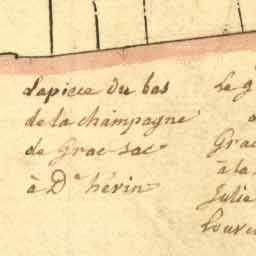 Lapiece du bas
de la champagne
de Grac-sac
à D.e hérin
Le g
Grac
à la
Julie
Louve